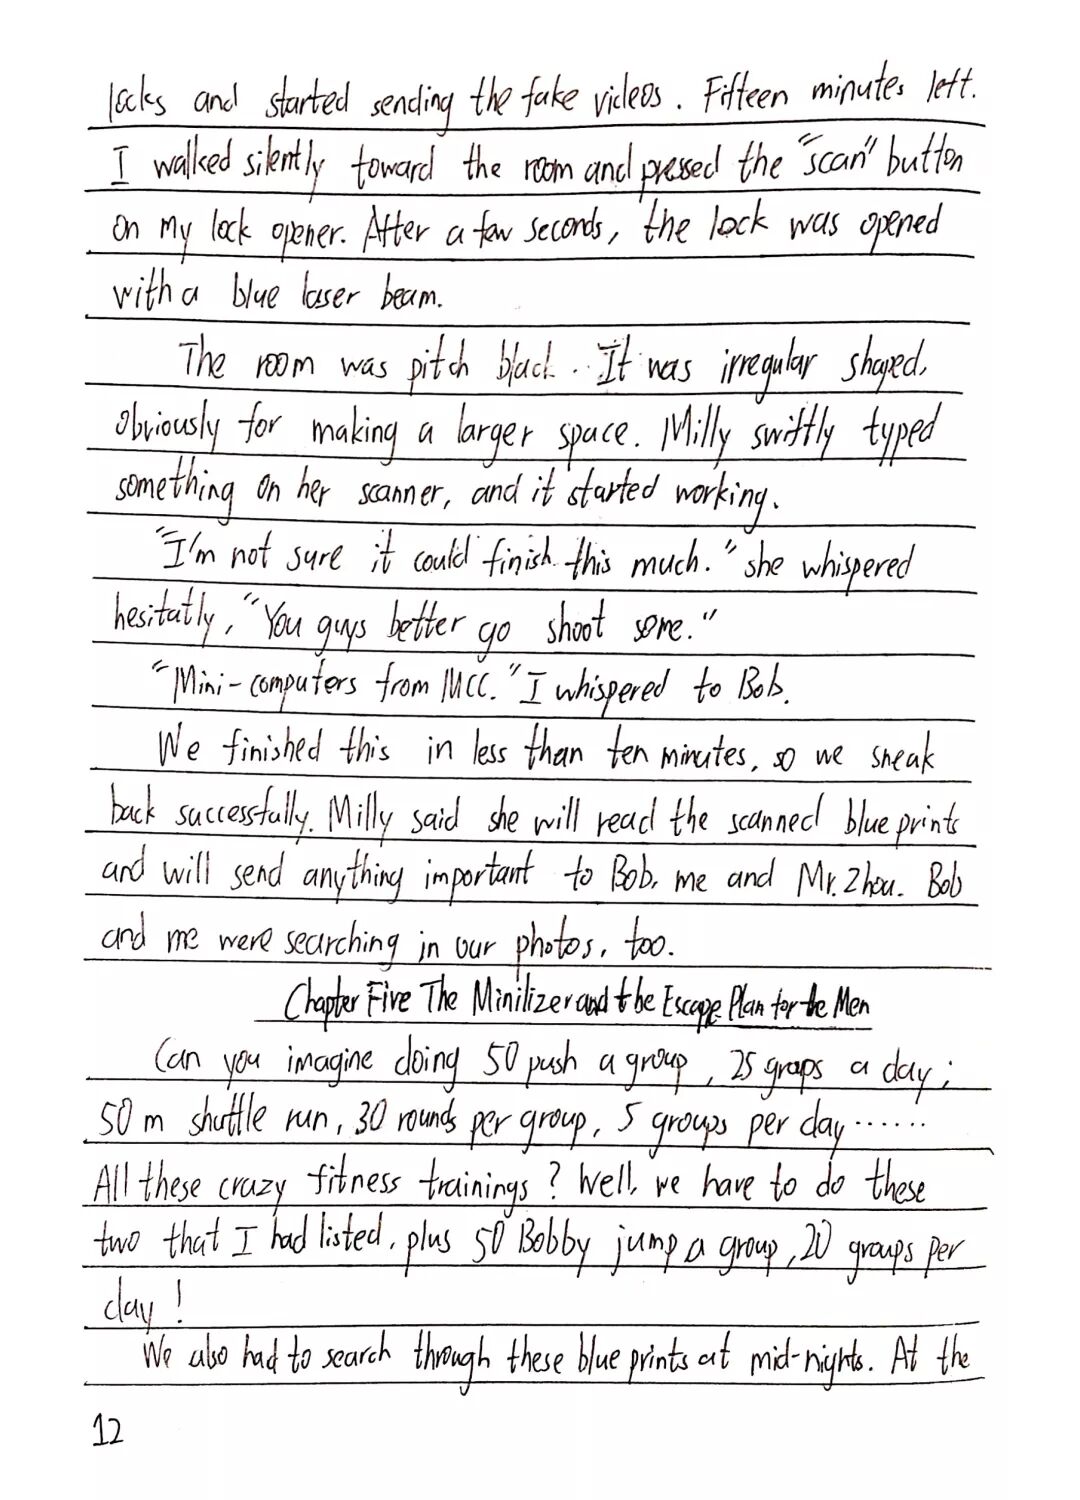 locks and started sending the fake videos. Fifteen minutes left.
I walked silently toward the room and pressed the "scan" button
on my lock opener. After a few seconds, the lock was opened
with a blue laser beam.
The room was pitch black. It was irregular shaped,
obviously for making a larger space. Milly swiftly typed
something on her scanner, and it started working.
"I'm not sure it could finish this much." she whispered
hesitatly, "You guys better go shoot some."
"Mini-computers from MCC." I whispered to Bob.
We finished this in less than ten minutes, so we sneak
back successfully. Milly said she will read the scanned blue prints
and will send anything important to Bob, me and Mr. Zhou. Bob
and me were searching in our photos, too.
Chapter Five The Minilizer and the Escape Plan for the Men
Can you imagine doing 50 push a group, 25 groups a day;
50 m shuttle run, 30 rounds per group, 5 groups per day······
All these crazy fitness trainings? Well, we have to do these
two that I had listed, plus 50 Bobby jump a group, 20 groups per
day!
We also had to search through these blue prints at mid-nights. At the
12